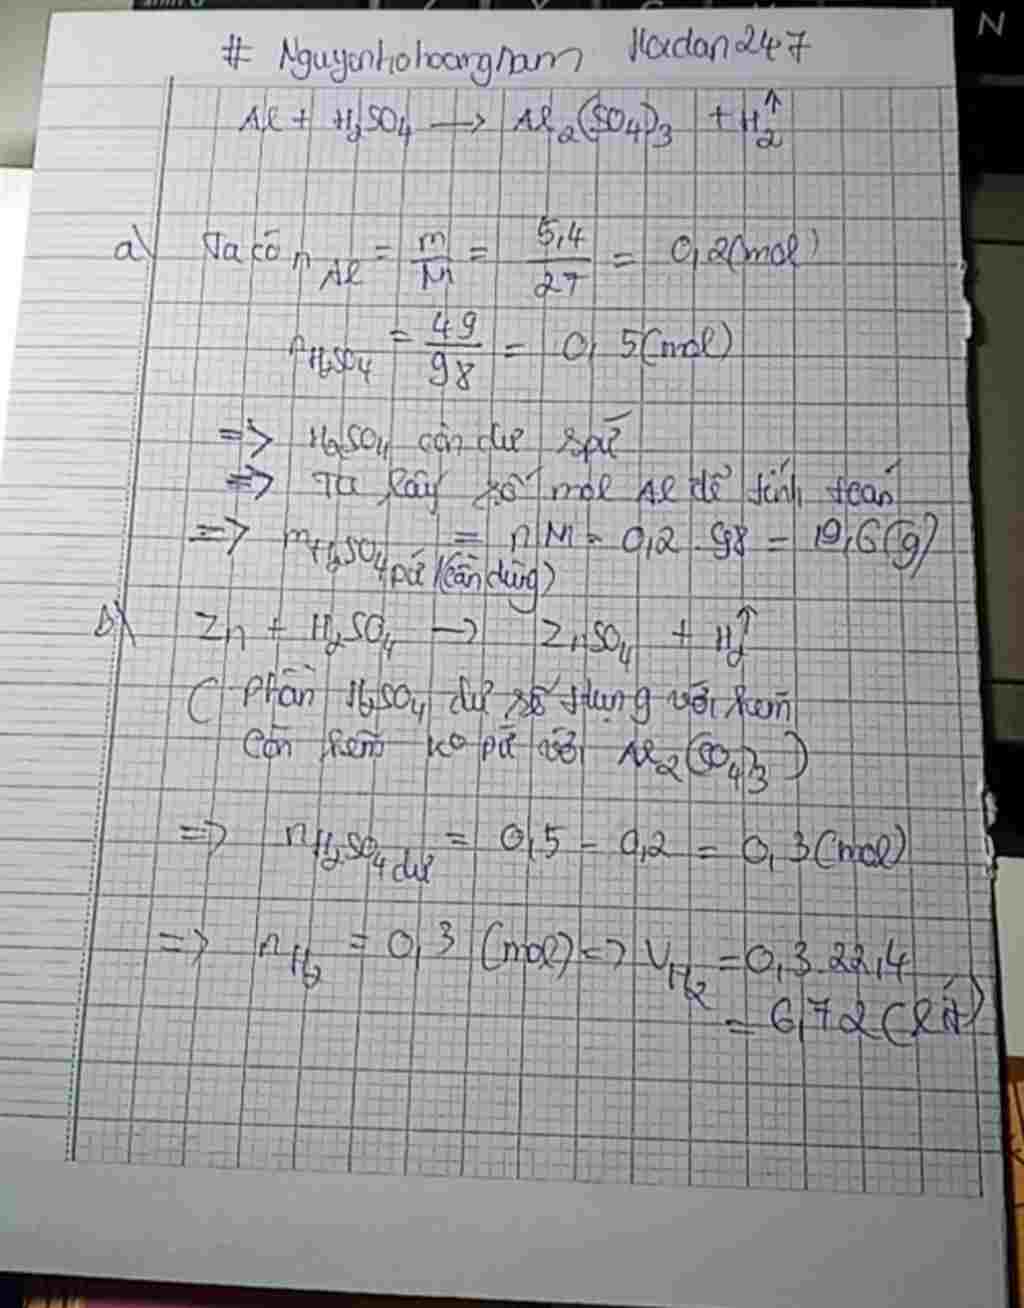 # Nguyenhohoangnam Hadan247
Al + H2SO4 → Al2(SO4)3 + H2↑
a) Ta có nAl = m/M = 5,4/27 = 0,2(mol)
nH2SO4 = 49/98 = 0,5(mol)
=> H2SO4 còn dư sau pứ
=> Ta lấy số mol Al để tính toán
=> mH2SO4 pứ (cần dùng) = n.M = 0,2.98 = 19,6(g)
b) Zn + H2SO4 → ZnSO4 + H2↑
( phần H2SO4 dư sẽ tdụng với kẽm
còn kẽm ko pứ với Al2(SO4)3 )
=> nH2SO4 dư = 0,5 - 0,2 = 0,3(mol)
=> nH2 = 0,3 (mol) => VH2 = 0,3.22,4
= 6,72(lít)